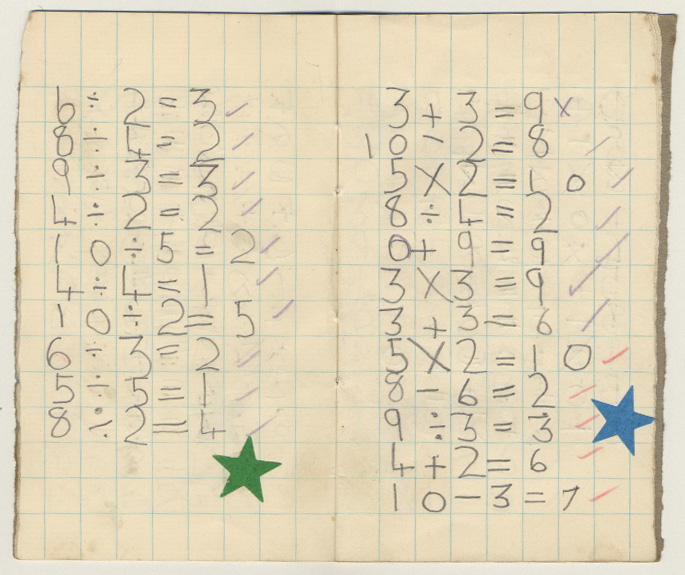 6 ÷ 2 = 3 ✓
8 ÷ 4 = 2 ✓
9 ÷ 3 = 3 ✓
4 ÷ 2 = 2 ✓
10 ÷ 5 = 2 ✓
4 ÷ 4 = 1 ✓
10 ÷ 2 = 5 ✓
6 ÷ 3 = 2 ✓
5 ÷ 5 = 1 ✓
8 ÷ 2 = 4 ✓
3 + 3 = 9 x
10 - 2 = 8 ✓
5 × 2 = 10 ✓
8 ÷ 4 = 2 ✓
0 + 9 = 9 ✓
3 × 3 = 9 ✓
3 + 3 = 6 ✓
5 × 2 = 10 ✓
8 - 6 = 2 ✓
9 ÷ 3 = 3 ✓
4 + 2 = 6 ✓
10 - 3 = 7 ✓